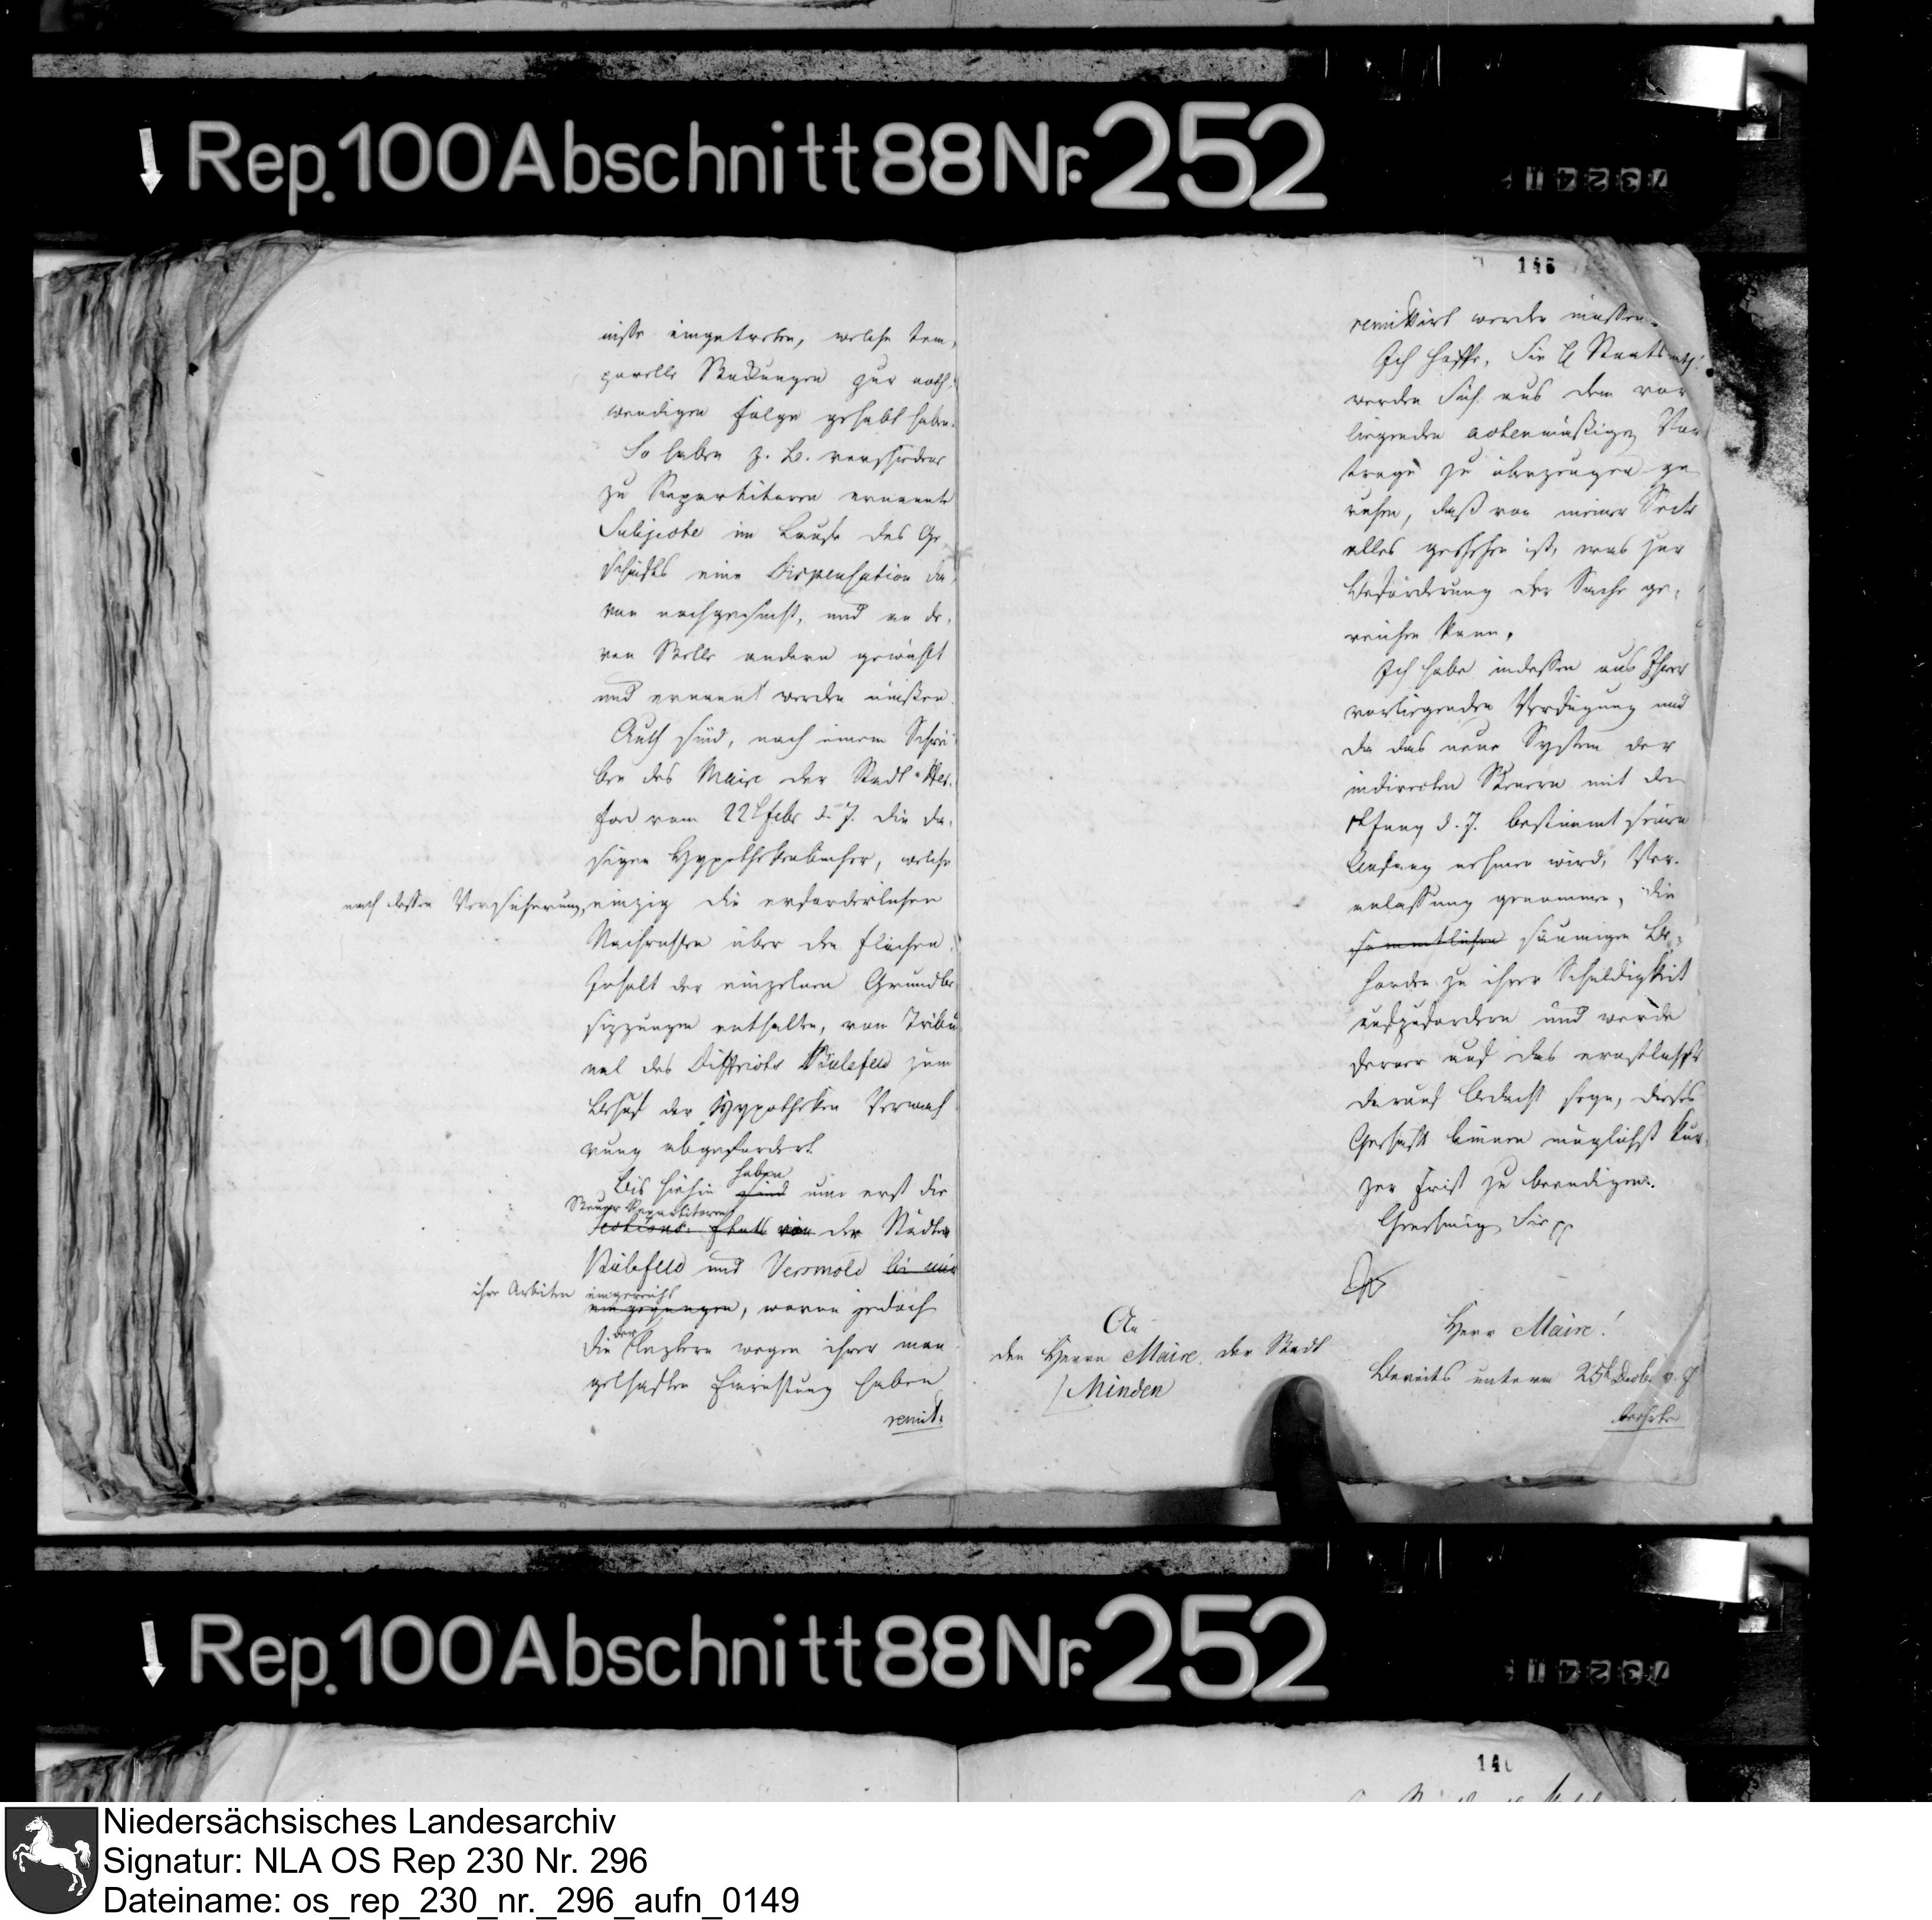 Rep. 100 Abschnitt 88 Nr. 252
nisse eingetreten, welche tem„
porelle Stockungen zur noth„
wendigen Folge gehabt haben.
So haben z. B. verschiedene
zu Repartitoren ernannte
Subjecte im Laufe des Ge„
schäfts eine Dispensation da„
von nachgesucht, und an de„
ren Stelle andere gewählt
und ernannt werden müßen.
Auch sind, nach einem Schrei„
ben des Maire der Stadt Her„
ford vom 22t Febr d. J. die da„
sigen Hypothekenbücher, welche
nach deßen Versicherung, einzig die erforderlichen
Nachrichten über den Flächen„
Inhalt der einzelnen Grundbe„
sizzungen enthalten, vom Tribu„
nal des Districts Bielefeld zum
Behuf der Hypotheken Verwah„
rung abgefordert.
haben
Bis hiehin sind nur erst die
Steuer Repartitoren
Sections- Etats von der Städte
Bielefeld und Versmold bei mir
ihre Arbeiten eingereicht
eingegangen, wovon jedoch
die der leztern wegen ihrer man„
gelhaften Einrichtung haben
remit„
145
remittirt werden müssen.
Ich hoffe, Sie H Staatsrath!
werden Sich aus dem vor
liegenden actenmäßigen Vor
trage zu überzeugen ge
ruhen, daß von meiner Seite
alles geschehen ist, was zur
Beförderung der Sache ge„
reichen kann.
Ich habe indessen aus Ihrer
vorliegenden Verfügung und
da das neue System der
indirecten Steuern mit dem
Anfang d. J. bestimmt seinen
Anfang nehmen wird, Ver„
anlassung genommen, die
sämmtlichen säumigen Be„
hörden zu ihrer Schuldigkeit
aufzufordern und werde
ferner auf das ernstlichste
darauf bedacht seyn, dieses
Geschäft binnen möglichst kur„
zer Frist zu beendigen.
Genehmigen Sie pp
An
den Herrn Maire der Stadt
Minden
Herr Maire!
Bereits unterm 25t Decb. v. J
Rep. 100 Abschnitt 88 Nr. 252
Niedersächsisches Landesarchiv
Signatur: NLA OS Rep 230 Nr. 296
Dateiname: os_rep_230_nr._296_aufn_0149